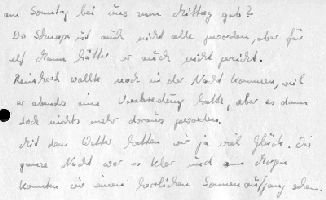 am Sonntag bei uns zum Mittag gab?
Der Schnaps ist auch nicht alle geworden, aber für
elf Mann hätte er auch nicht gereicht.
Reinhard wollte noch in der Nacht kommen, weil
er abends eine Verabredung hatte, aber es dann
doch nichts mehr daraus geworden.
Mit dem Wetter hatten wir ja viel Glück. Die
ganze Nacht war es klar und am Morgen
konnten wir einen herrlichen Sonnenaufgang sehen.